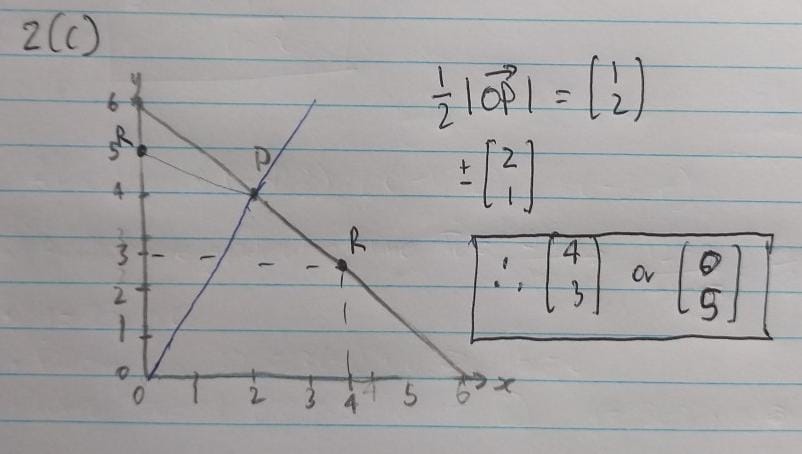 2(c)
y
6
R
5
P
4
R
3
2
1
0
0 1 2 3 4 4 5 6 x
½ |OP⃗| = (1 2)
± [2 1]
∴ (4 3) or (0 5)